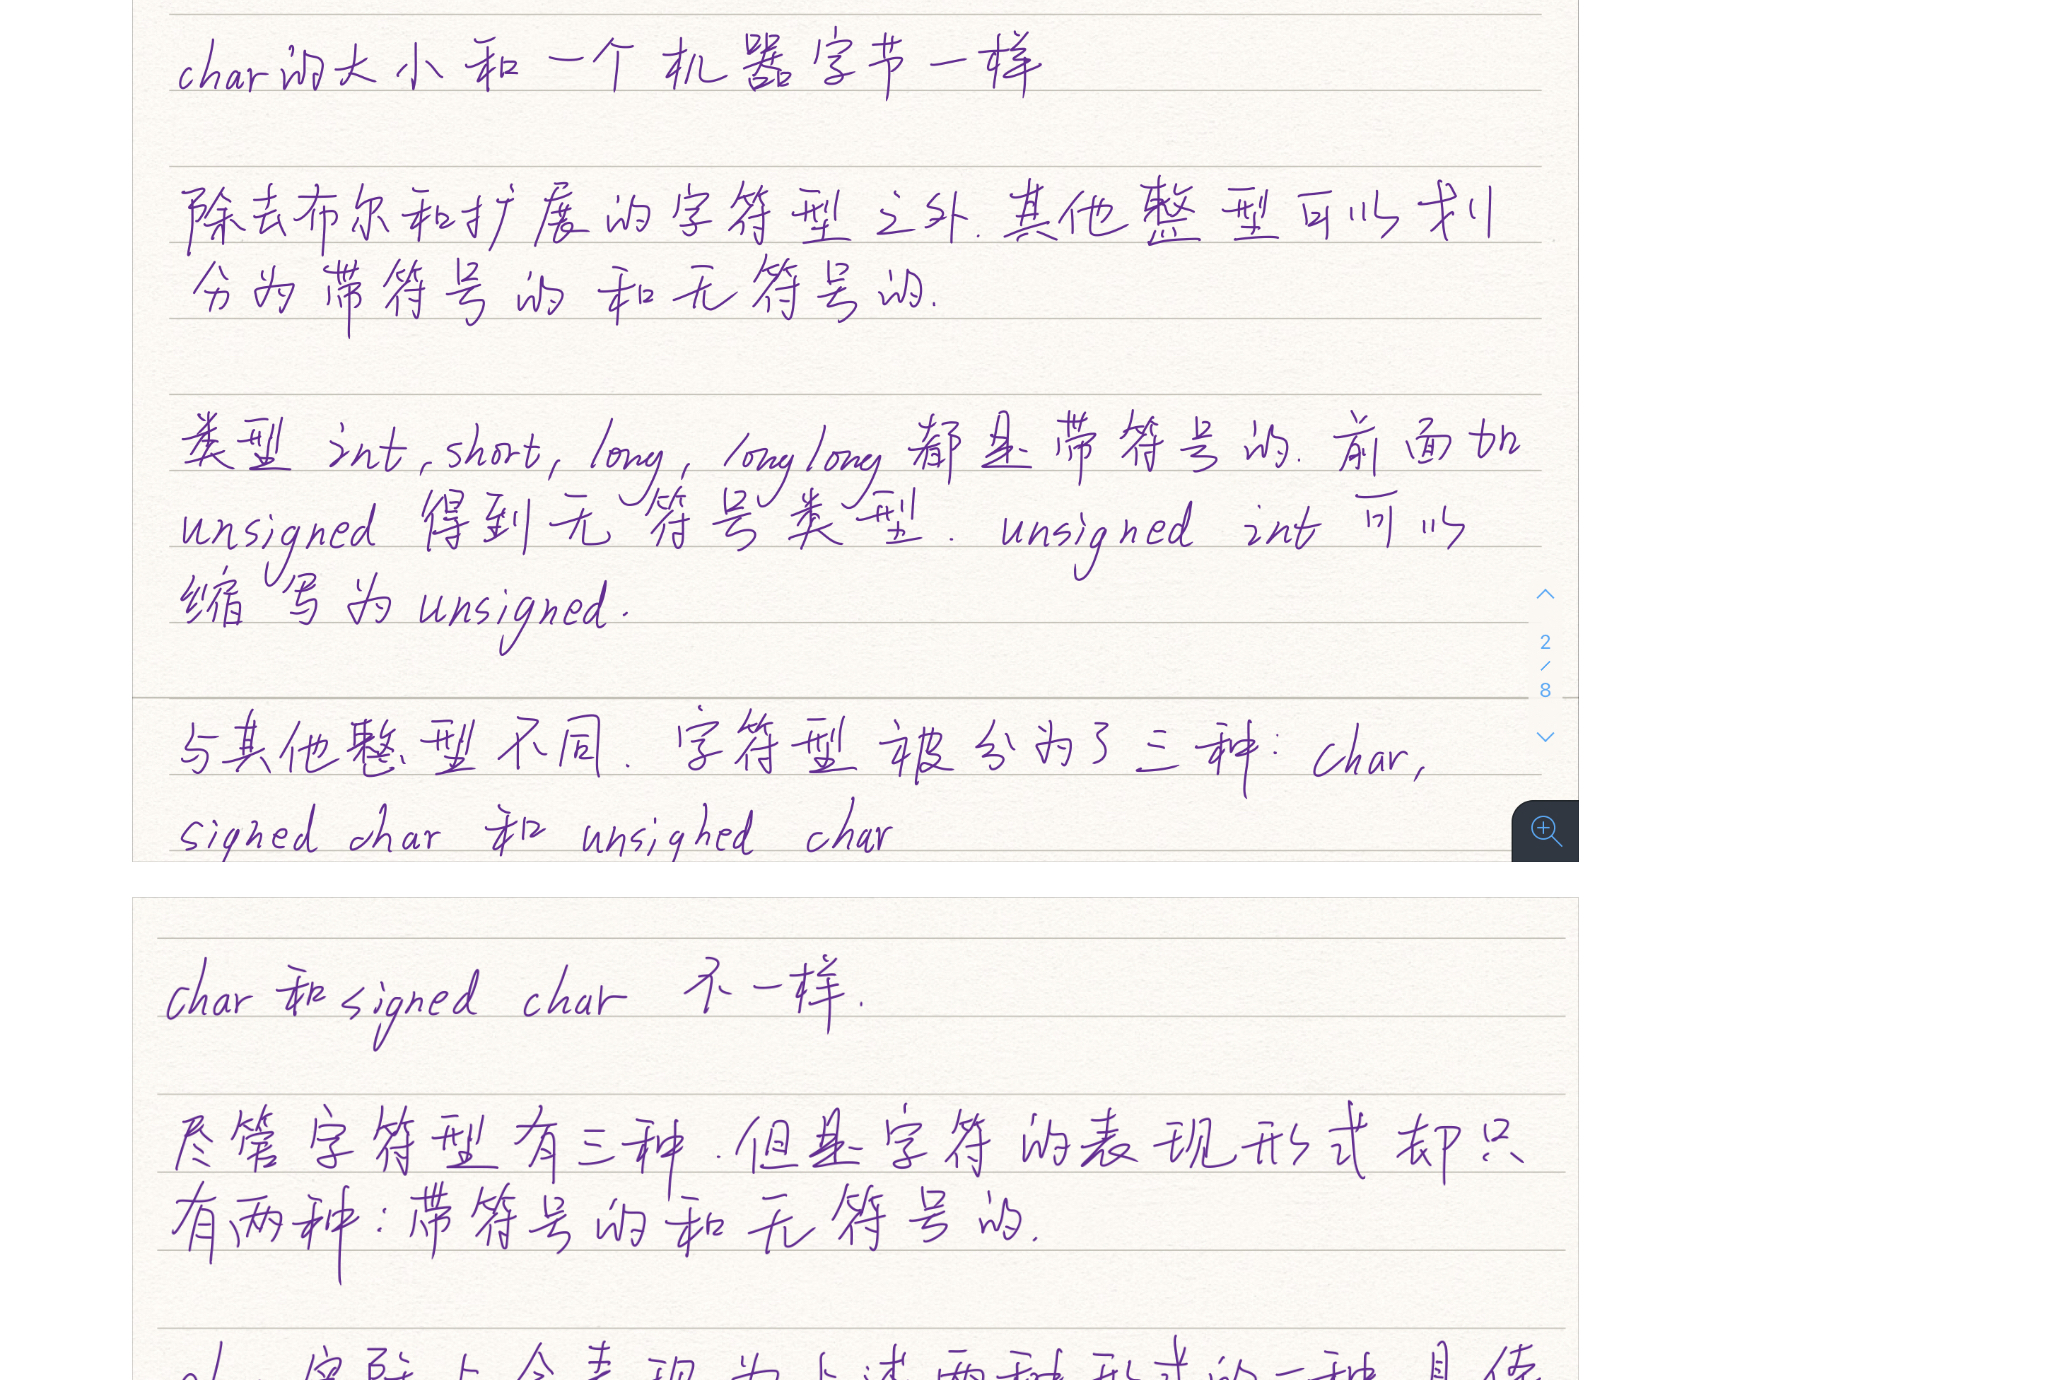 char的大小和一个机器字节一样
除去布尔和扩展的字符型之外.其他整型可以划
分为带符号的和无符号的.
类型 int, short, long, long long 都是带符号的.前面加
unsigned 得到无符号类型. unsigned int 可以
缩写为 unsigned.
2
/
8
与其他整型不同.字符型被分为了三种: char,
signed char 和 unsigned char
char 和 signed char 不一样.
尽管字符型有三种.但是字符的表现形式却只
有两种:带符号的和无符号的.
实际上会表现为上述两种形式的一种 具体